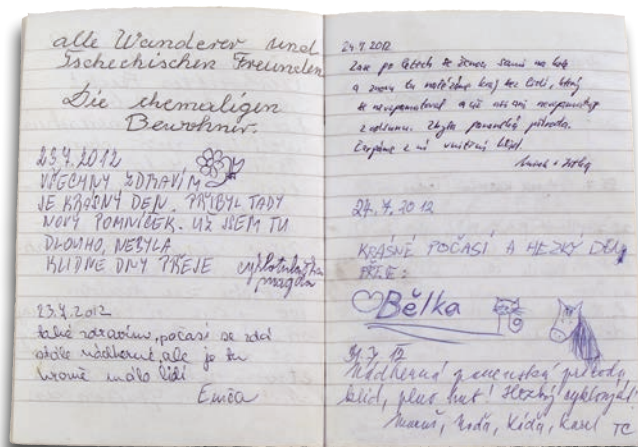 alle Wanderer und
Tschechischen Freunden
Die ehemaligen
Bewohner.
23.7.2012
VŠECHNY ZDRAVÍM
JE KRÁSNÝ DEN. PŘIBYL TADY
NOVÝ POMNÍČEK. UŽ JSEM TU
DLOUHO, NEBYLA
KLIDNÉ DNY PŘEJE cykloturistka
magda
23.7.2012
také zdravím, počasí se zdá
stále nádherné, ale je tu
hromě málo lidí
Emča
24.7.2012
Zase po letech se ženou sami na kole
a znovu tu nalézáme kraj bez lidí, který
se nevzpamatoval a už asi ani nevzpamatuje
z odsunu. Zbyla panenská příroda.
Čerpáme z ní vnitřní klid.
24.7.2012
KRÁSNÉ POČASÍ A HEZKÝ DEN
PŘEJE:
Bělka
31.7.12
Nádherná panenská příroda,
klid, plus